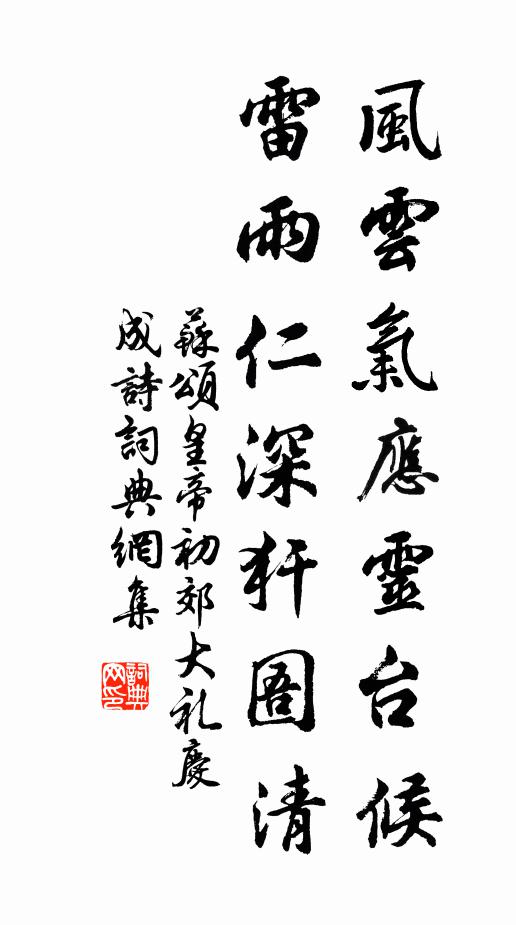 風雲氣應靈台候
雷雨仁深犴圄清
蘇頌皇帝初郊大礼慶
成詩詞典網集
詞典网印